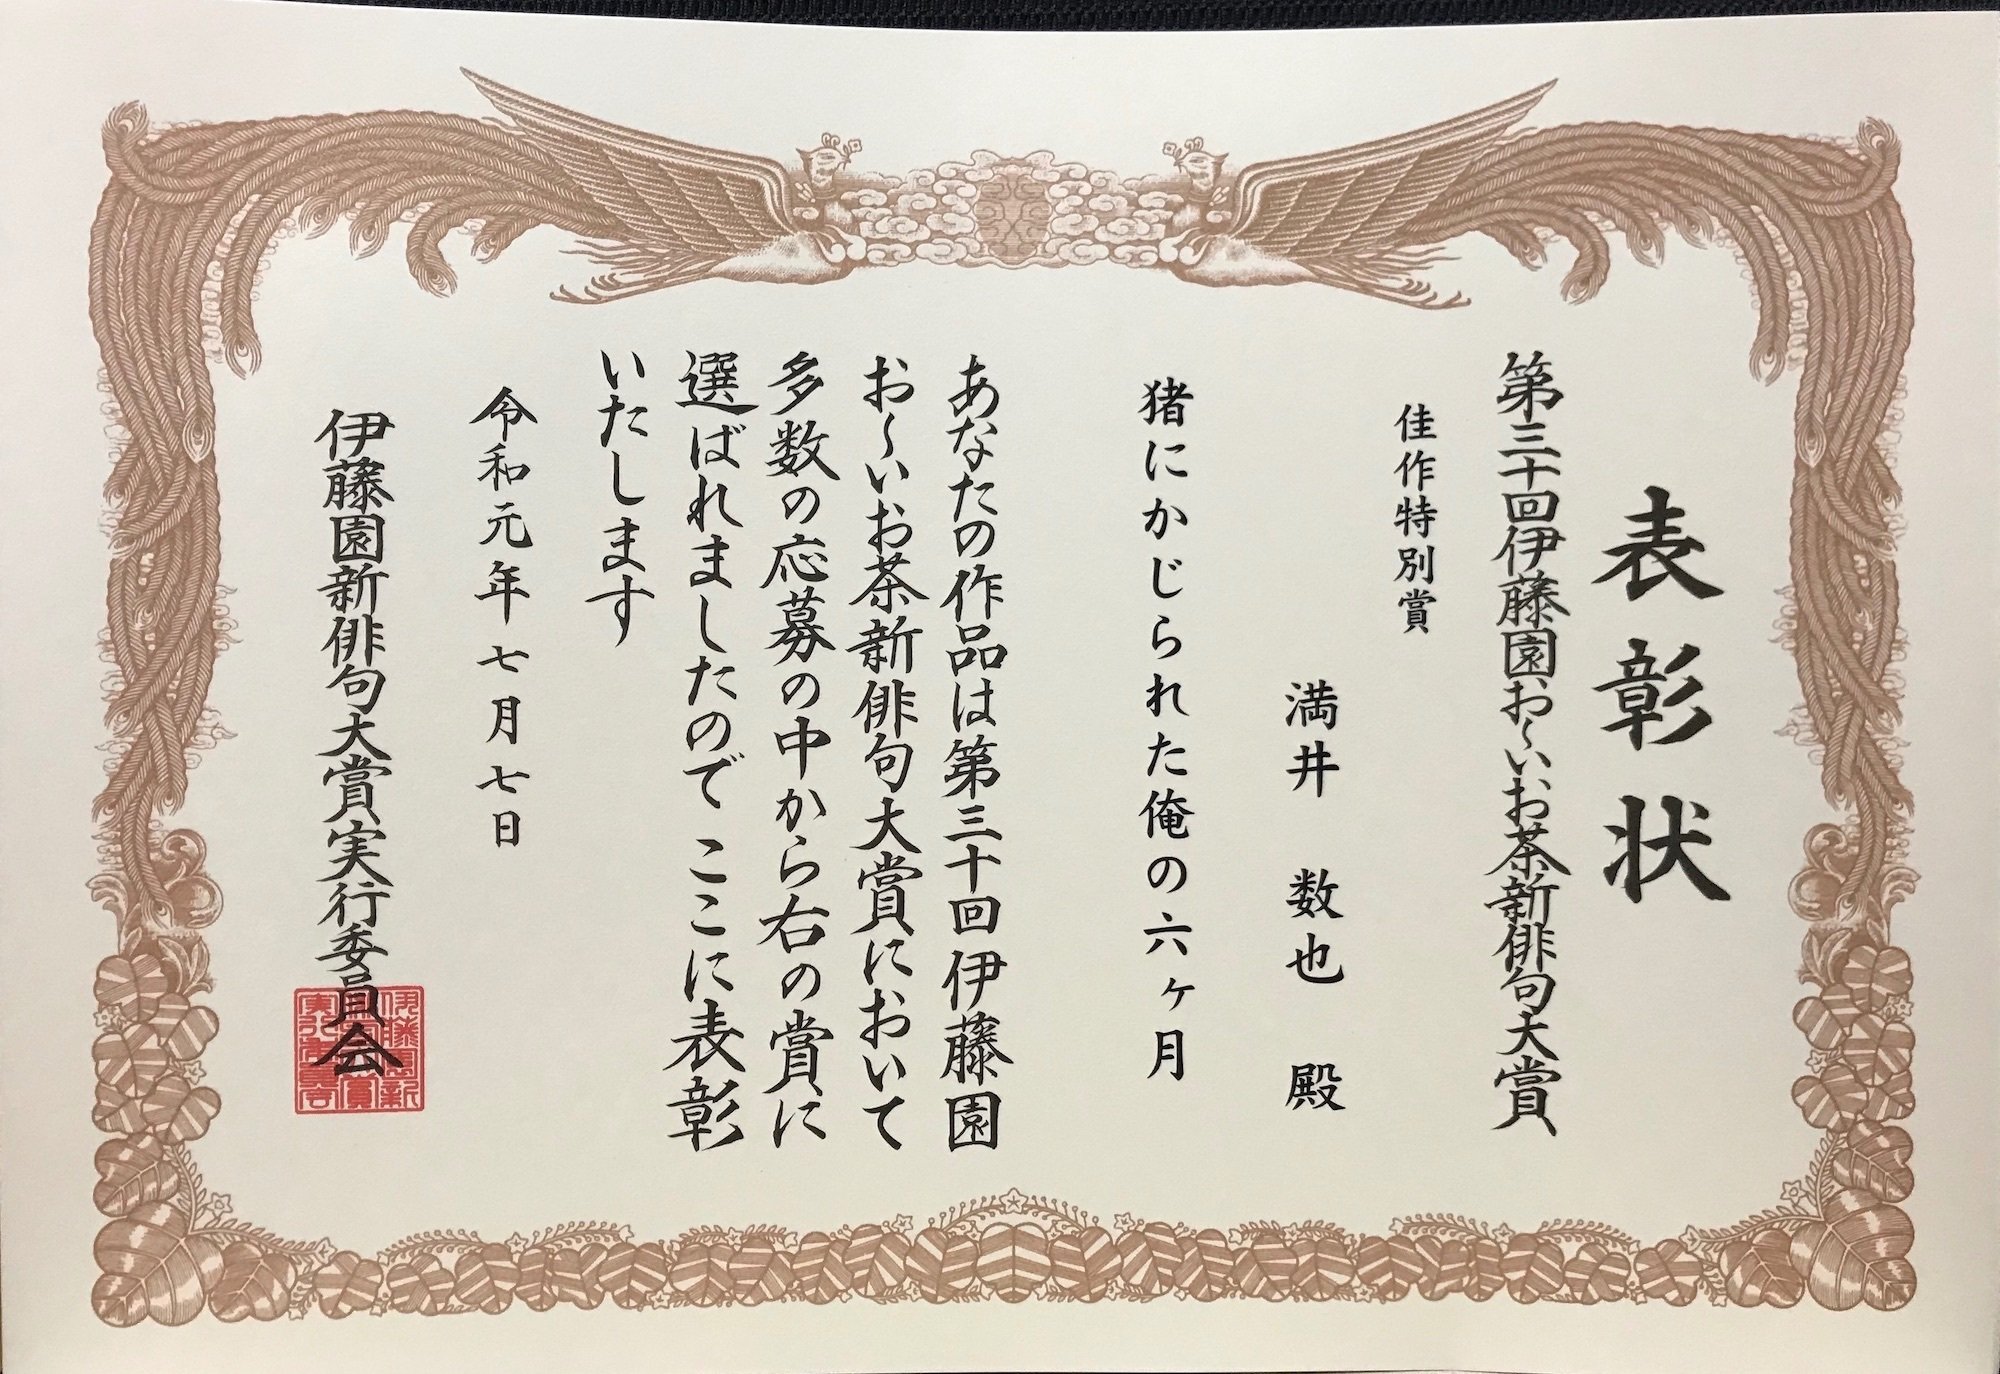 表彰状
第三十回伊藤園お〜いお茶新俳句大賞
佳作特別賞
満井 数也 殿
猪にかじられた俺の六ヶ月
あなたの作品は第三十回伊藤園
お〜いお茶新俳句大賞において
多数の応募の中から右の賞に
選ばれましたので ここに表彰
いたします
令和元年七月七日
伊藤園新俳句大賞実行委員会